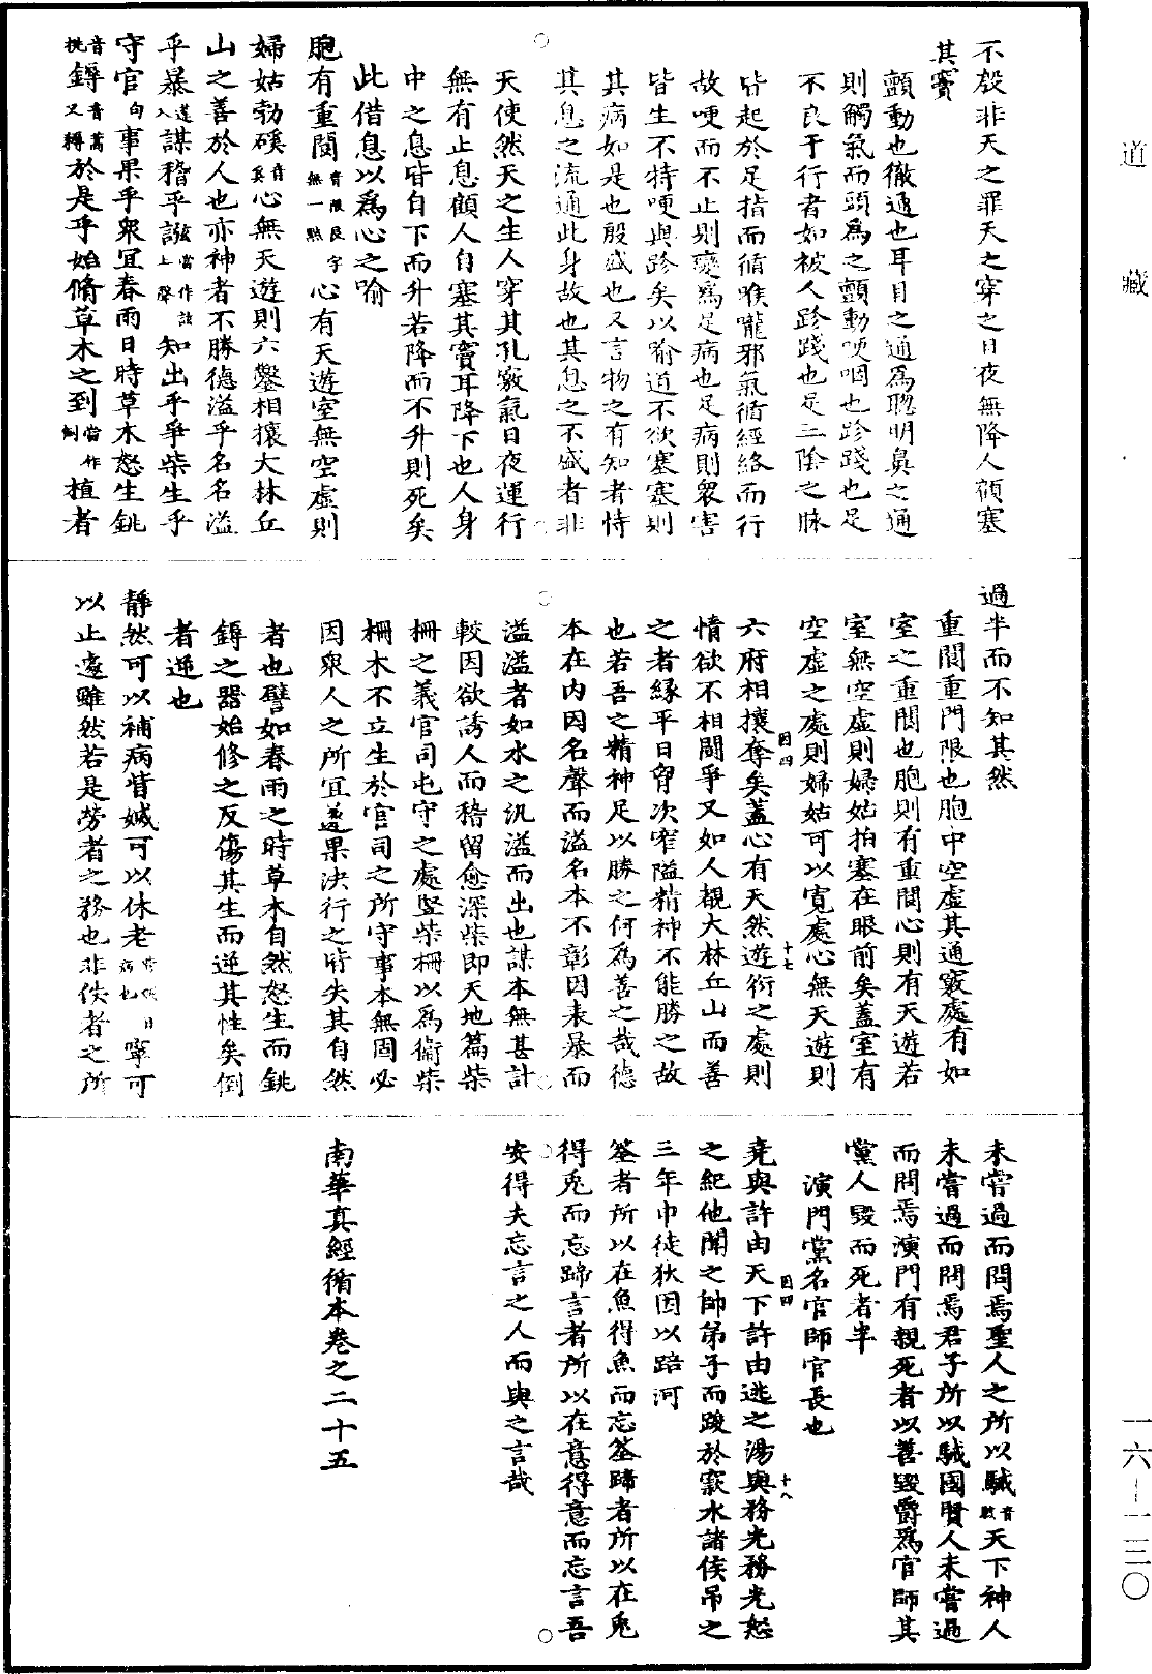 不殷非天之罪天之穿之日夜無降人顧塞
其竇
顫動也徹通也耳目之通為聰明鼻之通
則觸氣而頭為之顫動哽咽也跈踐也足
不良于行者如被人跈踐也足三陰之脉
皆起於足指而循喉嚨邪氣循經絡而行
故哽而不止則變為足病也足病則衆害
皆生不特哽與跈矣以喻道不欲塞塞則
其病如是也殷盛也又言物之有知者恃
其息之流通此身故也其息之不盛者非
天使然天之生人穿其孔竅氣日夜運行
無有止息顧人自塞其竇耳降下也人身
中之息皆自下而升若降而不升則死矣
此借息以為心之喻
胞有重閬音限良字無一點心有天遊室無空虛則
婦姑勃磎音奚心無天遊則六鑿相攘大林丘
山之善於人也亦神者不勝德溢乎名名溢
乎暴謀稽乎誸知出乎爭柴生乎
守官句事果乎衆宜春雨日時草木怒生銚
音挑鎒於是乎始脩草木之到當作倒植者
過半而不知其然
重閬重門限也胞中空虛其通竅處有如
室之重閬也胞則有重閬心則有天遊若
室無空虛則婦姑拍塞在眼前矣蓋室有
空虛之處則婦姑可以寬處心無天遊則
六府相攘奪矣蓋心有天然遊衍之處則
情欲不相鬪爭又如人觀大林丘山而善
之者緣平日胷次窄隘精神不能勝之故
也若吾之精神足以勝之何為善之哉德
本在內因名聲而溢名本不彰因表暴而
溢溢者如水之汎溢而出也謀本無甚計
較因欲誘人而稽留愈深柴即天地篇柴
柵之義官司屯守之處竪柴柵以為衞柴
柵木不立生於官司之所守事本無固必
因衆人之所宜遂果決行之皆失其自然
者也譬如春雨之時草木自然怒生而銚
鎒之器始修之反傷其生而逆其性矣倒
者逆也
靜然可以補病眥媙可以休老寧可
以止遽雖然若是勞者之務也非佚者之所
未嘗過而問焉聖人之所以駴音駭天下神人
未嘗過而問焉君子所以駴國賢人未嘗過
而問焉演門有親死者以善毀爵為官師其
黨人毀而死者半
演門黨名官師官長也
堯與許由天下許由逃之湯與務光務光怒
之紀他聞之帥弟子而踆於窾水諸侯吊之
三年申徒狄因以踣河
筌者所以在魚得魚而忘筌蹄者所以在兎
得兎而忘蹄言者所以在意得意而忘言吾
安得夫忘言之人而與之言哉
南華真經循本卷之二十五
道藏
一六—一三〇